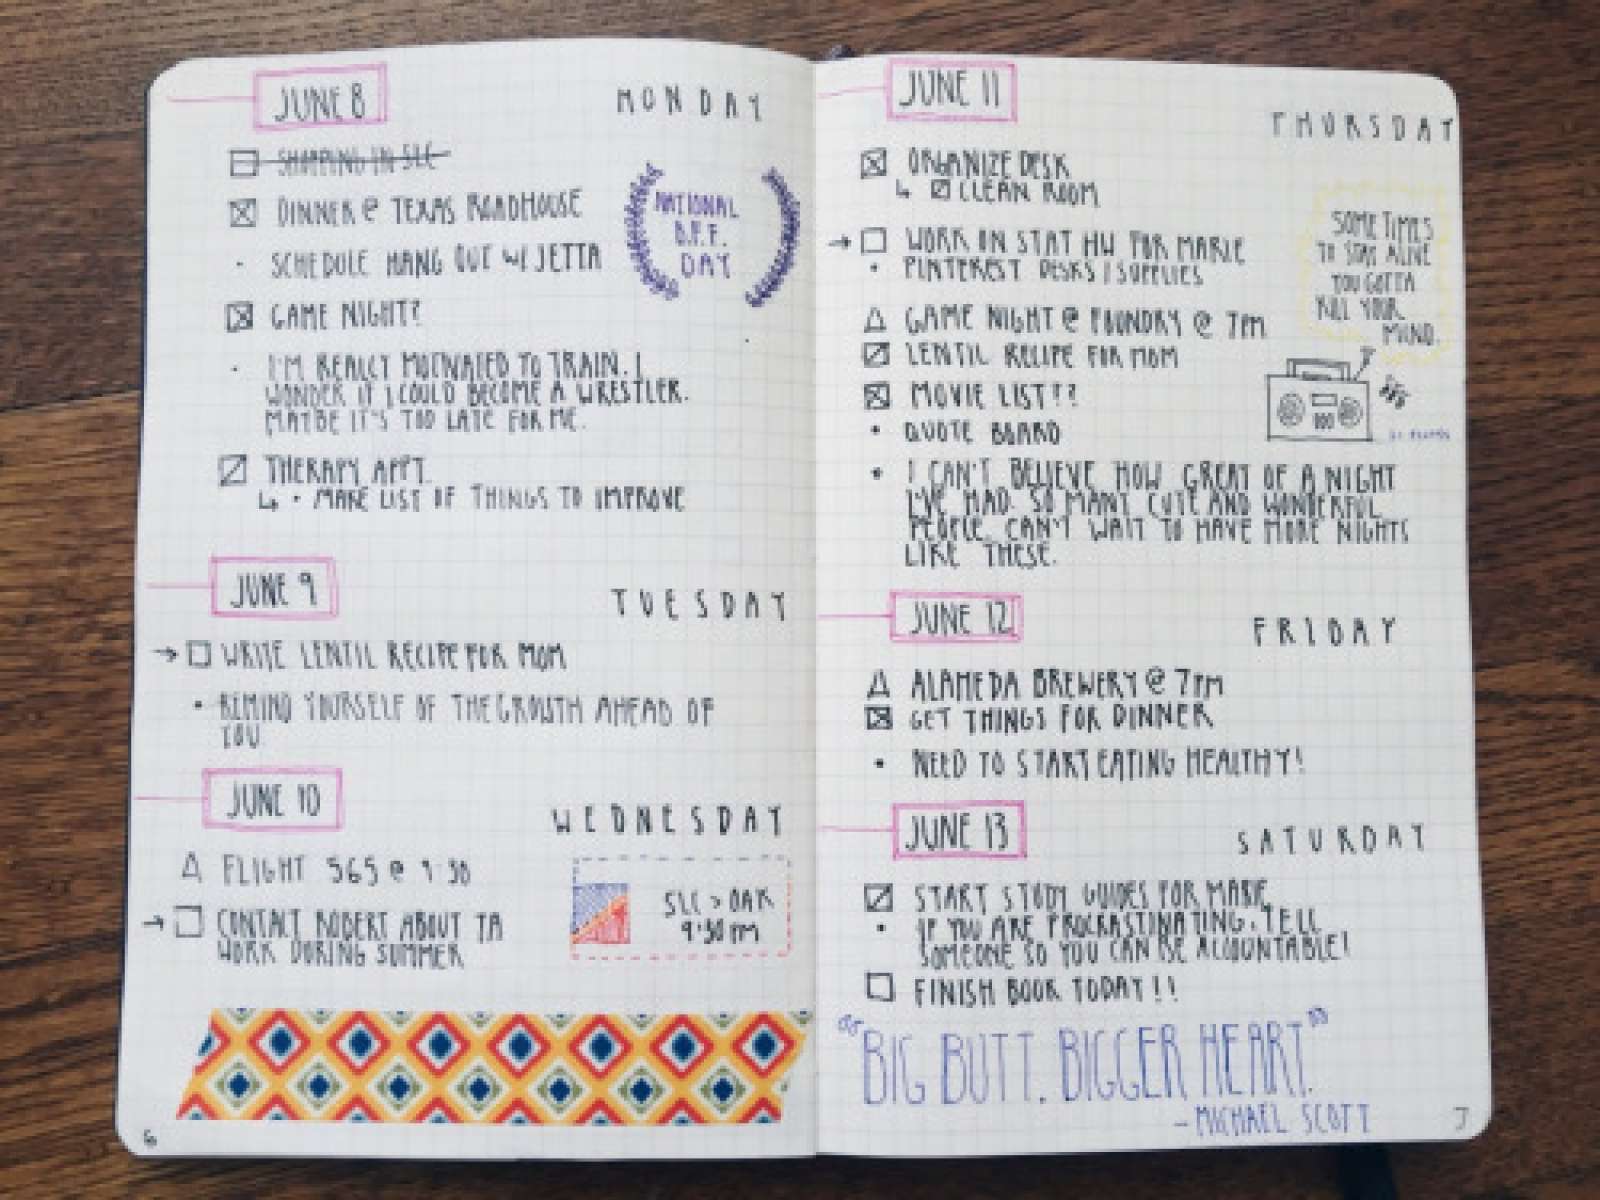 JUNE 8
MONDAY
SHOPPING IN SLC
DINNER @ TEXAS ROADHOUSE
SCHEDULE HANG OUT W/ JETTA
GAME NIGHT?
I'M REALLY MOTIVATED TO TRAIN. I
WONDER IF I COULD BECOME A WRESTLER.
MAYBE IT'S TOO LATE FOR ME.
THERAPY APPT.
↳ • MAKE LIST OF THINGS TO IMPROVE
NATIONAL
B.F.F.
DAY
JUNE 9
TUESDAY
→ WRITE LENTIL RECIPE FOR MOM
REMIND YOURSELF OF THE GROWTH AHEAD OF
YOU
JUNE 10
WEDNESDAY
FLIGHT 365 @ 9:30
→ CONTACT ROBERT ABOUT TA
WORK DURING SUMMER
SLC > OAK
9:30 PM
6
JUNE 11
THURSDAY
ORGANIZE DESK
↳ CLEAN ROOM
→ WORK ON STAT HW FOR MARIE
PINTEREST DESKS / SUPPLIES
GAME NIGHT @ FOUNDRY @ 7PM
LENTIL RECIPE FOR MOM
MOVIE LIST??
QUOTE BOARD
I CAN'T BELIEVE HOW GREAT OF A NIGHT
I'VE HAD. SO MANY CUTE AND WONDERFUL
PEOPLE. CAN'T WAIT TO HAVE MORE NIGHTS
LIKE THESE.
SOMETIMES
TO STAY ALIVE
YOU GOTTA
KILL YOUR
MIND.
JUNE 12
FRIDAY
ALAMEDA BREWERY @ 7PM
GET THINGS FOR DINNER
NEED TO START EATING HEALTHY!
JUNE 13
SATURDAY
START STUDY GUIDES FOR MARIE
IF YOU ARE PROCRASTINATING, TELL
SOMEONE SO YOU CAN BE ACCOUNTABLE!
FINISH BOOK TODAY!!
"BIG BUTT. BIGGER HEART."
- MICHAEL SCOTT
7